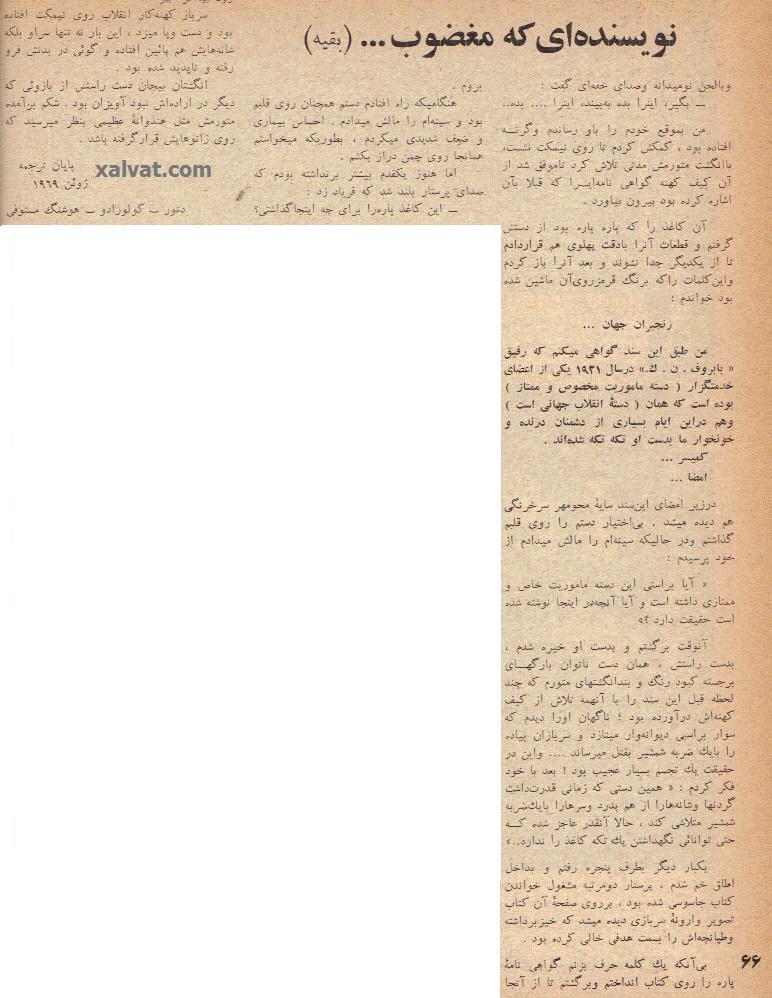 نویسنده‌ای که مغضوب ... (بقیه)
وبالحن نومیدانه وصدای خفه‌ای گفت :
ــ بگیر، اینرا بده به‌بینند، اینرا .... بده..
من بموقع خودم را باو رساندم وگرنــه
افتاده بود ، کمکش کردم تا روی نیمکت نشست،
باانگشت متورمش مدتی تلاش کرد تاموفق شد از
آن کیف کهنه گواهی نامه‌ایــرا که قبلا بآن
اشاره کرده بود بیرون بیاورد .
آن کاغذ را که پاره پاره بود از دستش
گرفتم و قطعات آنرا بادقت پهلوی هم قراردادم
تا از یکدیگر جدا نشوند و بعد آنرا باز کردم
واین‌کلمات راکه برنگ قرمزروی‌آن ماشین شده
بود خواندم :
رنجبران جهان ...
من طبق این سند گواهی میکنم که رفیق
« بابروف . ن . ك.» درسال ۱۹۲۱ یکی از اعضای
خدمتگزار ( دسته ماموریت مخصوص و ممتاز )
بوده است که همان ( دستۀ انقلاب جهانی است )
وهم دراین ایام بسیاری از دشمنان درنده و
خونخوار ما بدست او تکه تکه شده‌اند .
کمیسر ...
امضا ...
درزیر امضای این‌سند سایۀ محومهر سرخ‌رنگی
هم دیده میشد . بی‌اختیار دستم را روی قلبم
گذاشتم ودر حالیکه سینه‌ام را مالش میدادم از
خود پرسیدم :
« آیا براستی این دسته ماموریت خاص و
ممتازی داشته است و آیا آنچه‌در اینجا نوشته شده
است حقیقت دارد ؟»
آنوقت برگشتم و بدست او خیره شدم ،
بدست راستش ، همان دست ناتوان بارگهــای
برجسته کبود رنگ و بندانگشتهای متورم که چند
لحظه قبل این سند را با آنهمه تلاش از کیف
کهنه‌اش درآورده بود ؛ ناگهان اورا دیدم که
سوار براسبی دیوانه‌وار میتازد و سربازان پیاده
را بایك ضربه شمشیر بقتل میرساند .... واین در
حقیقت یك تجسم بسیار عجیب بود ! بعد با خود
فکر کردم : « همین دستی که زمانی قدرت‌داشت
گردنها وشانه‌هارا از هم بدرد وسرهارا بایك‌ضربه
شمشیر متلاشی کند ، حالا آنقدر عاجز شده کــه
حتی توانائی نگهداشتن یك تکه کاغذ را ندارد..»
یکبار دیگر بطرف پنجره رفتم و بداخل
اطاق خم شدم ، پرستار دومرتبه مشغول خواندن
کتاب جاسوسی شده بود ، برروی صفحۀ آن کتاب
تصویر وارونۀ سربازی دیده میشد که خیزبرداشته
وطپانچه‌اش را بسمت هدفی خالی کرده بود .
بی‌آنکه یك کلمه حرف بزنم گواهی نامۀ
پاره را روی کتاب انداختم وبرگشتم تا از آنجا
بروم .
هنگامیکه راه افتادم دستم همچنان روی قلبم
بود و سینه‌ام را مالش میدادم . احساس بیماری
و ضعف شدیدی میکردم ، بطوریکه میخواستم
همانجا روی چمن دراز بکشم .
اما هنوز یکقدم بیشتر برنداشته بودم که
صدای پرستار بلند شد که فریاد زد :
ــ این کاغذ پاره‌را برای چه اینجاگذاشتی؟
سرباز کهنه‌کار انقلاب روی نیمکت افتاده
بود و دست وپا میزد ، این بار نه تنها سراو بلکه
شانه‌هایش هم پائین افتاده و گوئی در بدنش فرو
رفته و ناپدید شده بود .
انگشتان بیجان دست راستش از بازوئی که
دیگر در اراده‌اش نبود آویزان بود . شکم برآمده
متورمش مثل هندوانۀ عظیمی بنظر میرسید که
روی زانوهایش قرارگرفته باشد .
پایان ترجمه
ژوئن ۱۹۶۹
دنور ــ کولورادو ــ هوشنگ مستوفی
xalvat.com
۶۶